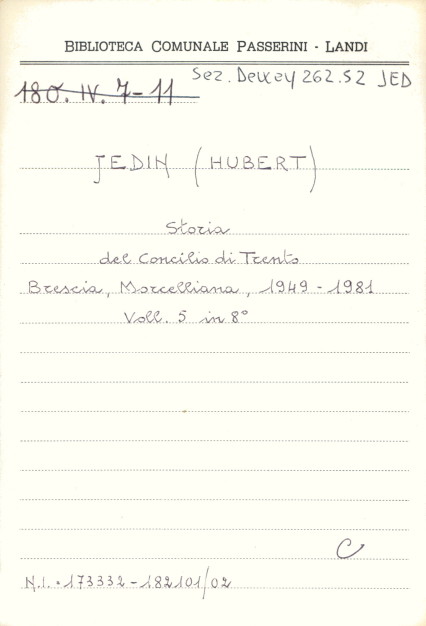 BIBLIOTECA COMUNALE PASSERINI - LANDI
Sez. Dewey 262.52 JED
180. IV. 7-11
JEDIN (HUBERT)
Storia
del Concilio di Trento
Brescia, Morcelliana, 1949 - 1981
Voll. 5 in 8°
C
N.I. • 173332 - 182101/02